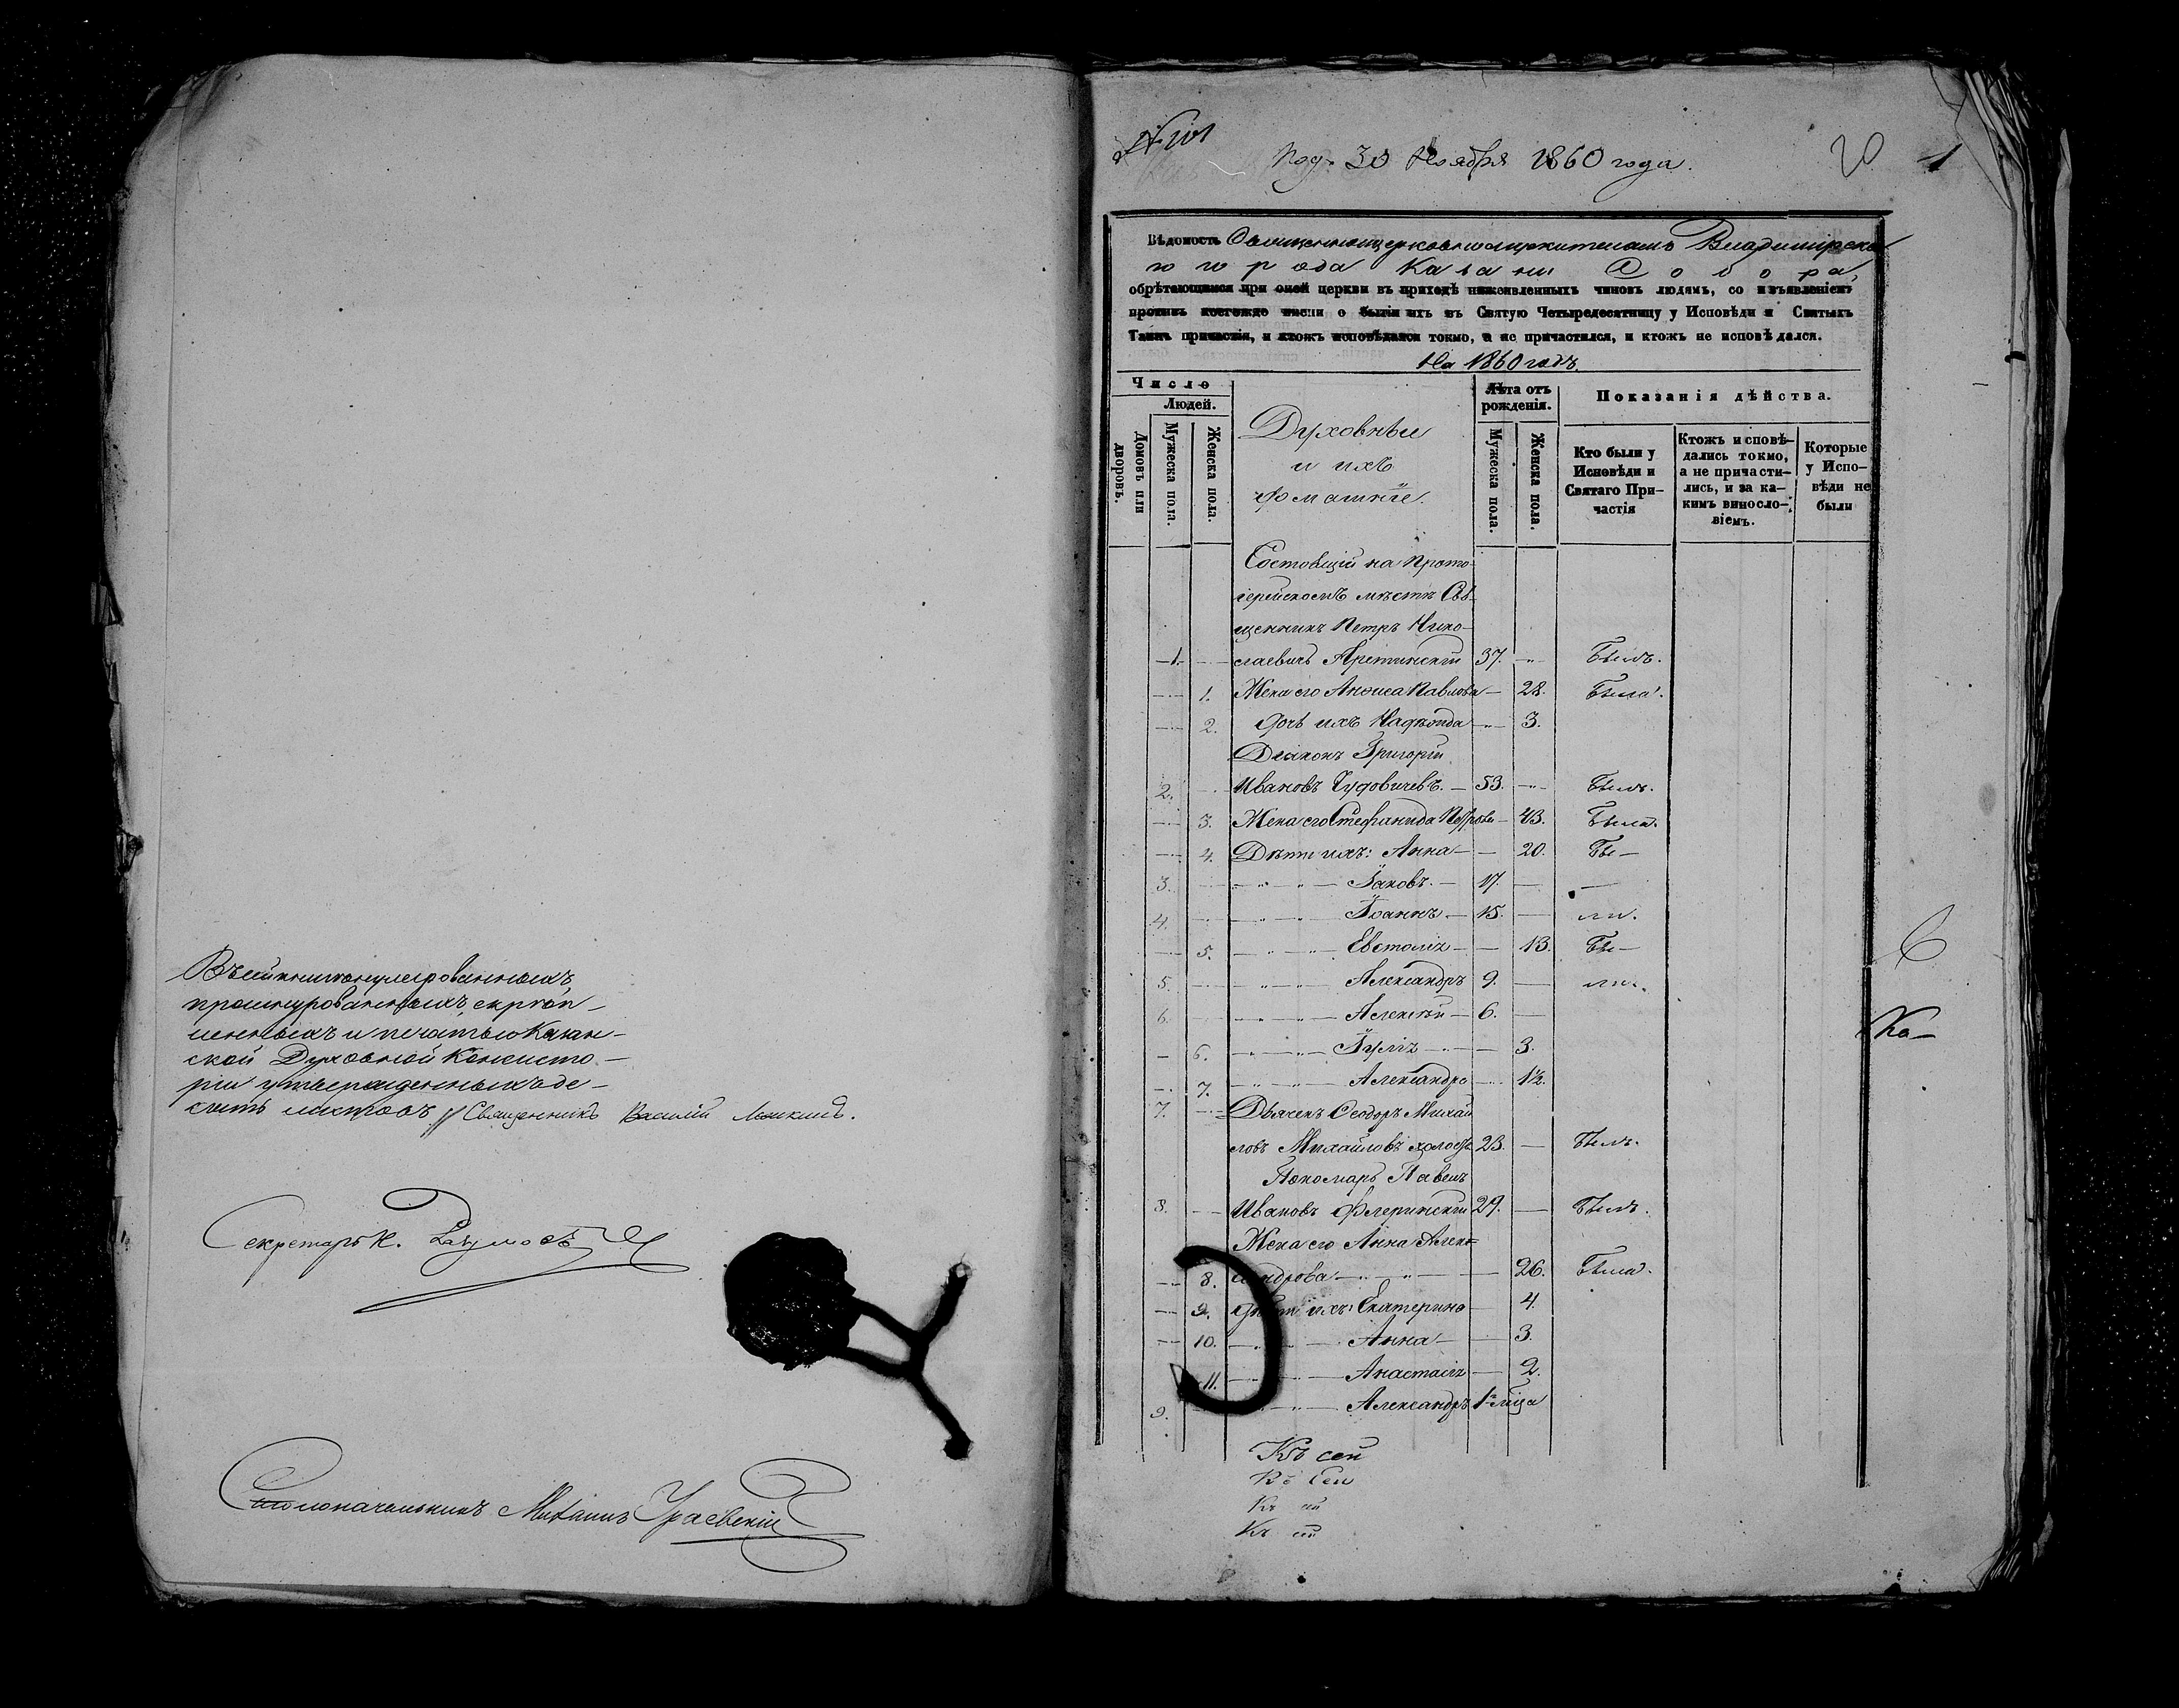 Въ сей книгѣ нумерованныхъ
прошнурованныхъ, скрѣп-
ленныхъ и печатью Казан-
ской Духовной Консисто-
ріи утвержденныхъ де-
сять листовъ // Священникъ Василій
Секретарь К. Разумовъ
Столоначальникъ Михаилъ
№ 101
Под. 30 Ноября 1860 года.
1
Вѣдомость Священноцерковнослужителямъ Владимірска
го города Казани Собора,
обрѣтающимся при оной церкви въ приходѣ нижеявленныхъ чиновъ людямъ, со изъявленіемъ
противъ коегождо имени о бытіи ихъ въ Святую Четыредесятницу у Исповѣди и Святыхъ
Таинъ причастія, и ктожъ исповѣдался токмо, а не причастился, и ктожъ не исповѣдался.
На 1860 годъ.
Число
Людей.
Домовъ или дворовъ.
Мужеска пола.
Женска пола.
Духовные
и ихъ
домашніе.
Лѣта отъ
рожденія.
Мужеска пола.
Женска пола.
Показанія дѣйства.
Кто были у
Исповѣди и
Святаго При-
частія
Ктожъ исповѣ-
дались токмо,
а не причасти-
лись, и за ка-
кимъ винослo-
віемъ.
Которые
у Испо-
вѣди не
были
Состоящій на Прото-
іерейскомъ мѣстѣ Свя-
щенникъ Петръ Нико-
1. лаевичъ Аретинскій 37. Былъ.
1. Жена его Анфиса Павлова 28. Была.
2. Дочь ихъ Надежда 3.
Діаконъ Григорій
2. Ивановъ 53. Былъ.
3. Жена его Стефанида Петрова 43. Была.
4. Дѣти ихъ: Анна 20. Бы-
3. Іаковъ. 17.
4. Іоаннъ. 15. ли.
5. Евстолія 13. Бы-
5. Александръ 9. ли.
6. Алексѣй 6.
6. Іулія 3.
7. Александра 1½.
7. Дьячекъ Ѳеодоръ Михай
ловъ Михайловъ холостъ 23. Былъ.
Пономарь Павелъ
8. Ивановъ Флеринскій 29. Былъ.
Жена его Анна Алек-
8. сандрова 26. Была.
9. Дѣти ихъ: Екатерина 4.
10. Анна 3.
11. Анастасія 2.
9. Александръ
Къ сей
Къ сей
Къ ей
Къ ей
Ка-